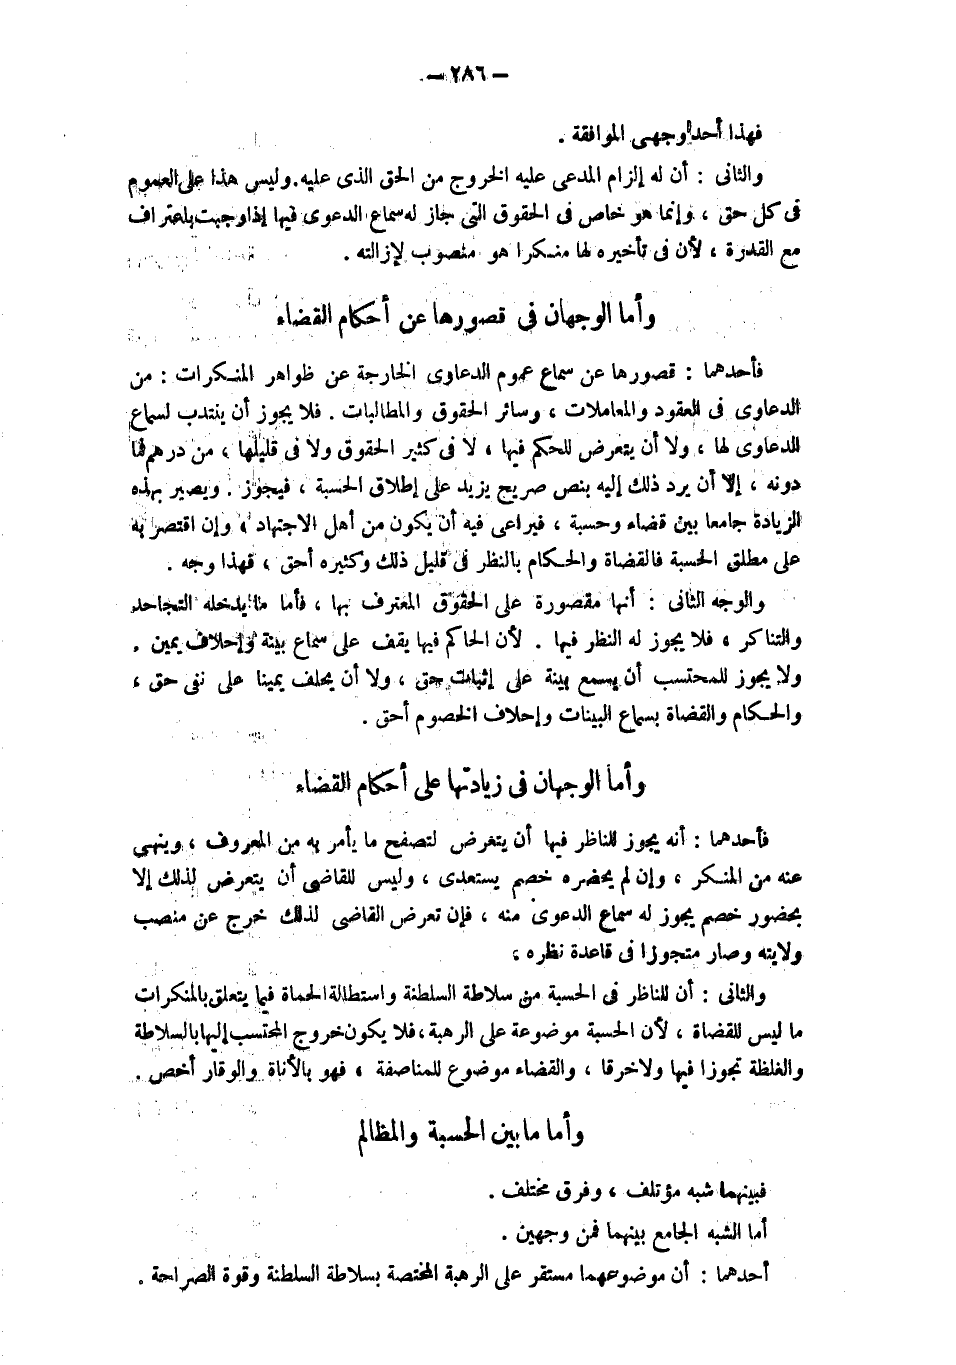 — ٢٨٦ —
فهذا أحد وجهى الموافقة .
والثانى : أن له إلزام المدعى عليه الخروج من الحق الذى عليه . وليس هذا على العموم
فى كل حق ، وإنما هو خاص فى الحقوق التى جاز له سماع الدعوى فيها إذا وجبت باعتراف
مع القدرة ، لأن فى تأخيره لها منكرا هو منصوب لإزالته .
وأما الوجهان فى قصورها عن أحكام القضاء
فأحدهما : قصورها عن سماع عموم الدعاوى الخارجة عن ظواهر المنكرات : من
الدعاوى فى العقود والمعاملات ، وسائر الحقوق والمطالبات . فلا يجوز أن ينتدب لسماع
الدعاوى لها ، ولا أن يتعرض للحكم فيها ، لا فى كثير الحقوق ولا فى قليلها ، من درهم فما
دونه ، إلا أن يرد ذلك إليه بنص صريح يزيد على إطلاق الحسبة ، فيجوز . ويصير بهذه
الزيادة جامعا بين قضاء وحسبة ، فيراعى فيه أن يكون من أهل الاجتهاد ، وإن اقتصر به
على مطلق الحسبة فالقضاة والحكام بالنظر فى قليل ذلك وكثيره أحق ، فهذا وجه .
والوجه الثانى : أنها مقصورة على الحقوق المعترف بها ، فأما ما يدخله التجاحد
والتناكر ، فلا يجوز له النظر فيها . لأن الحاكم فيها يقف على سماع بينة وإحلاف يمين .
ولا يجوز للمحتسب أن يسمع بينة على إثبات حق ، ولا أن يحلف يمينا على نفى حق ،
والحكام والقضاة بسماع البينات وإحلاف الخصوم أحق .
وأما الوجهان فى زيادتها على أحكام القضاء
فأحدهما : أنه يجوز للناظر فيها أن يتعرض لتصفح ما يأمر به من المعروف ، وينهى
عنه من المنكر ، وإن لم يحضره خصم يستعدى ، وليس للقاضى أن يتعرض لذلك إلا
بحضور خصم يجوز له سماع الدعوى منه ، فإن تعرض القاضى لذلك خرج عن منصب
ولايته وصار متجوزا فى قاعدة نظره ؛
والثانى : أن للناظر فى الحسبة من سلاطة السلطنة واستطالة الحماة فيما يتعلق بالمنكرات
ما ليس للقضاة ، لأن الحسبة موضوعة على الرهبة ، فلا يكون خروج المحتسب إليها بالسلاطة
والغلظة تجوزا فيها ولا خرقا ، والقضاء موضوع للمناصفة ، فهو بالأناة والوقار أخص .
وأما ما بين الحسبة والمظالم
فبينهما شبه مؤتلف ، وفرق مختلف .
أما الشبه الجامع بينهما فمن وجهين .
أحدهما : أن موضوعهما مستقر على الرهبة المختصة بسلاطة السلطنة وقوة الصراحة .